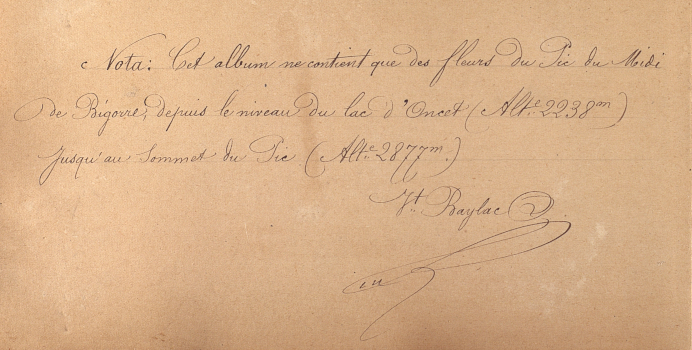 Nota: Cet album ne contient que des fleurs du Pic du Midi
de Bigorre, depuis le niveau du lac d'Oncet (Alt.e 2238m)
jusqu'au sommet du Pic (Alt.e 2877m.)
Vt. Baylac